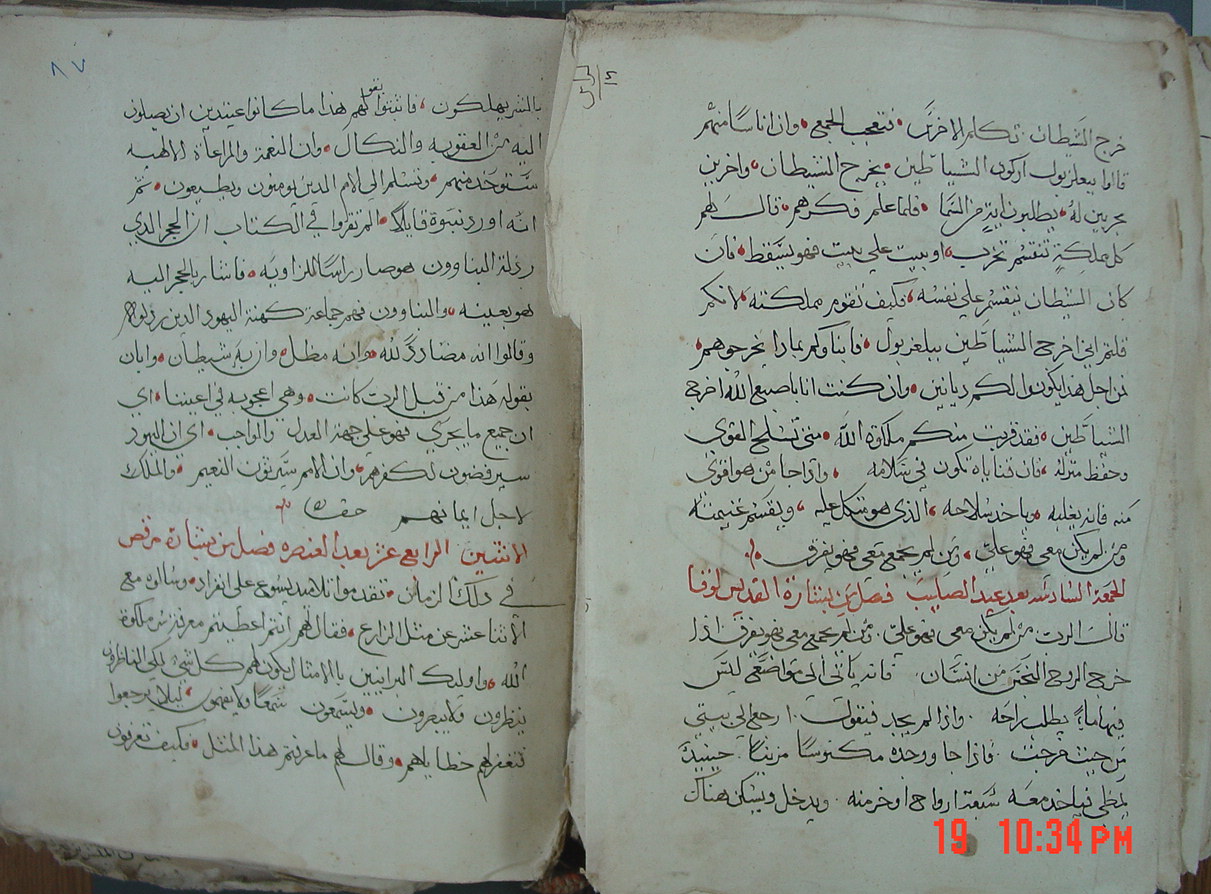 خرج الشيطان تكلم الاخرس فتعجب الجمع وان اناسا منهم
قالوا ببعلزبول اركون الشياطين يخرج الشيطان واخرين
مجربين له يطلبون اية من السما فلما علم فكرهم قال لهم
كل مملكة تنقسم تخرب وبيت علي بيت فهو يسقط فان
كان الشيطان ينقسم علي نفسه فكيف تقوم مملكته لانكم
قلتم اني اخرج الشياطين ببعلزبول فابناوكم بمادا يخرجوهم
من اجل هدا يكونوا لكم ديانين وان كنت انا باصبع الله اخرج
الشياطين فقد قربت منكم ملكوة الله متي تسلح القوي
وحفظ منزله فان قنياته تكون في سلامه واذا جا من هو اقوي
منه فانه يغلبه وياخد سلاحه الذي هو متكل عليه ويقسم غنيمته
ومن لم يكن معي فهو علي ومن لم يجمع معي فهو يفرق
الجمعة السادسة بعد عيد الصليب فصل من بشارة القديس لوقا
قال الرب من لم يكن معي فهو علي ومن لم يجمع معي فهو يفرق اذا
خرج الروح النجس من انسان فانه ياتي الي مواضع ليس
فيها ما يطلب راحه واذا لم يجد فيقول ارجع الي بيتي
من حيث خرجت فاذا جا ووجده مكنوسا مزينا حينيد
يمضي فياخد معه سبعة ارواح اخر منه ويدخل ويسكن هناك
٨٧
بالشر يهلكون فاثبتوا بقولهم هذا ما كانوا عتيدين ان يصلون
اليه من العقوبه والنكال وان النعمة والمراعاة الالهيه
ستوخد منهم وتسلم الي الامم الدين يومنون ويطيعون ثم
انه اورد نبوة قايلا الم تقروا في الكتاب ان الحجر الدي
ردلة البناوون هو صار راسا للزاويه فاشار بالحجر اليه
هو بعينه والبناوون فهم جماعة كهنة اليهود الدين ردلوه
وقالوا انه مضادد لله وانه مظل وان به شيطان وابان
بقوله هذا من قبل الرب كانت وهي اعجوبه في اعيننا اي
ان جميع ما يجري فهو علي جهة العدل والواجب اي ان اليهود
سيرفضون لكفرهم وان الامم سيرثون النعيم والملك
لاجل ايمانهم حقا
الاثنين الرابع عشر بعد العنصره فصل من بشارة مرقص
في دلك الزمان تقدموا تلاميد يسوع علي انفراد وسالوه مع
الاثنا عشر عن مثل الزارع فقال لهم انتم اعطيتم معرفة سر ملكوة
الله واوليك البرانيين بالامثال يكون لهم كل شي لكي الناظرون
ينظرون فلا يبصرون ويسمعون سمعا ولا يفهمون ليلا يرجعوا
فتغفر لهم خطاياهم وقال لهم ما عرفتم هذا المثل فكيف تعرفون
19 10:34 PM